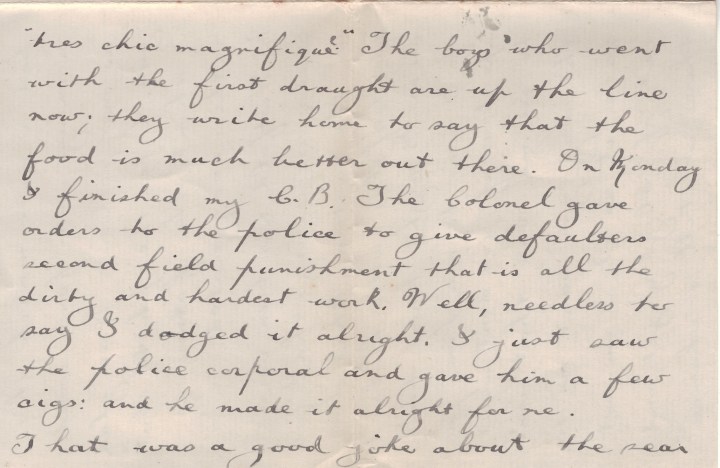 "tres chic magnifique" The boys who went
with the first draught are up the line
now; they write home to say that the
food is much better out there. On Monday
I finished my C.B. The Colonel gave
orders to the police to give defaulters
second field punishment that is all the
dirty and hardest work. Well, needless to
say I dodged it alright. I just saw
the police corporal and gave him a few
cigs: and he made it alright for me.
That was a good joke about the